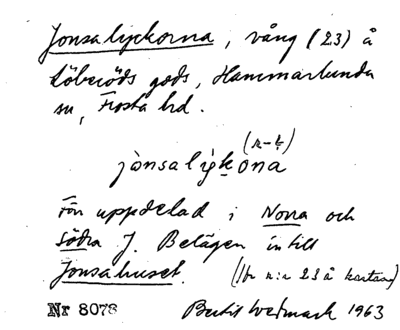 Jonsalyckorna, vång (23) å
Löberöds gods, Hammarlunda
sn, Frosta hd.
(r-ł)
jònsalykona
Förr uppdelad i Norra och
Södra J. Belägen intill
Jonsahuset. (Jfr n:r 23 å kartan)
Nr 8078 Bertil Wedmark 1963